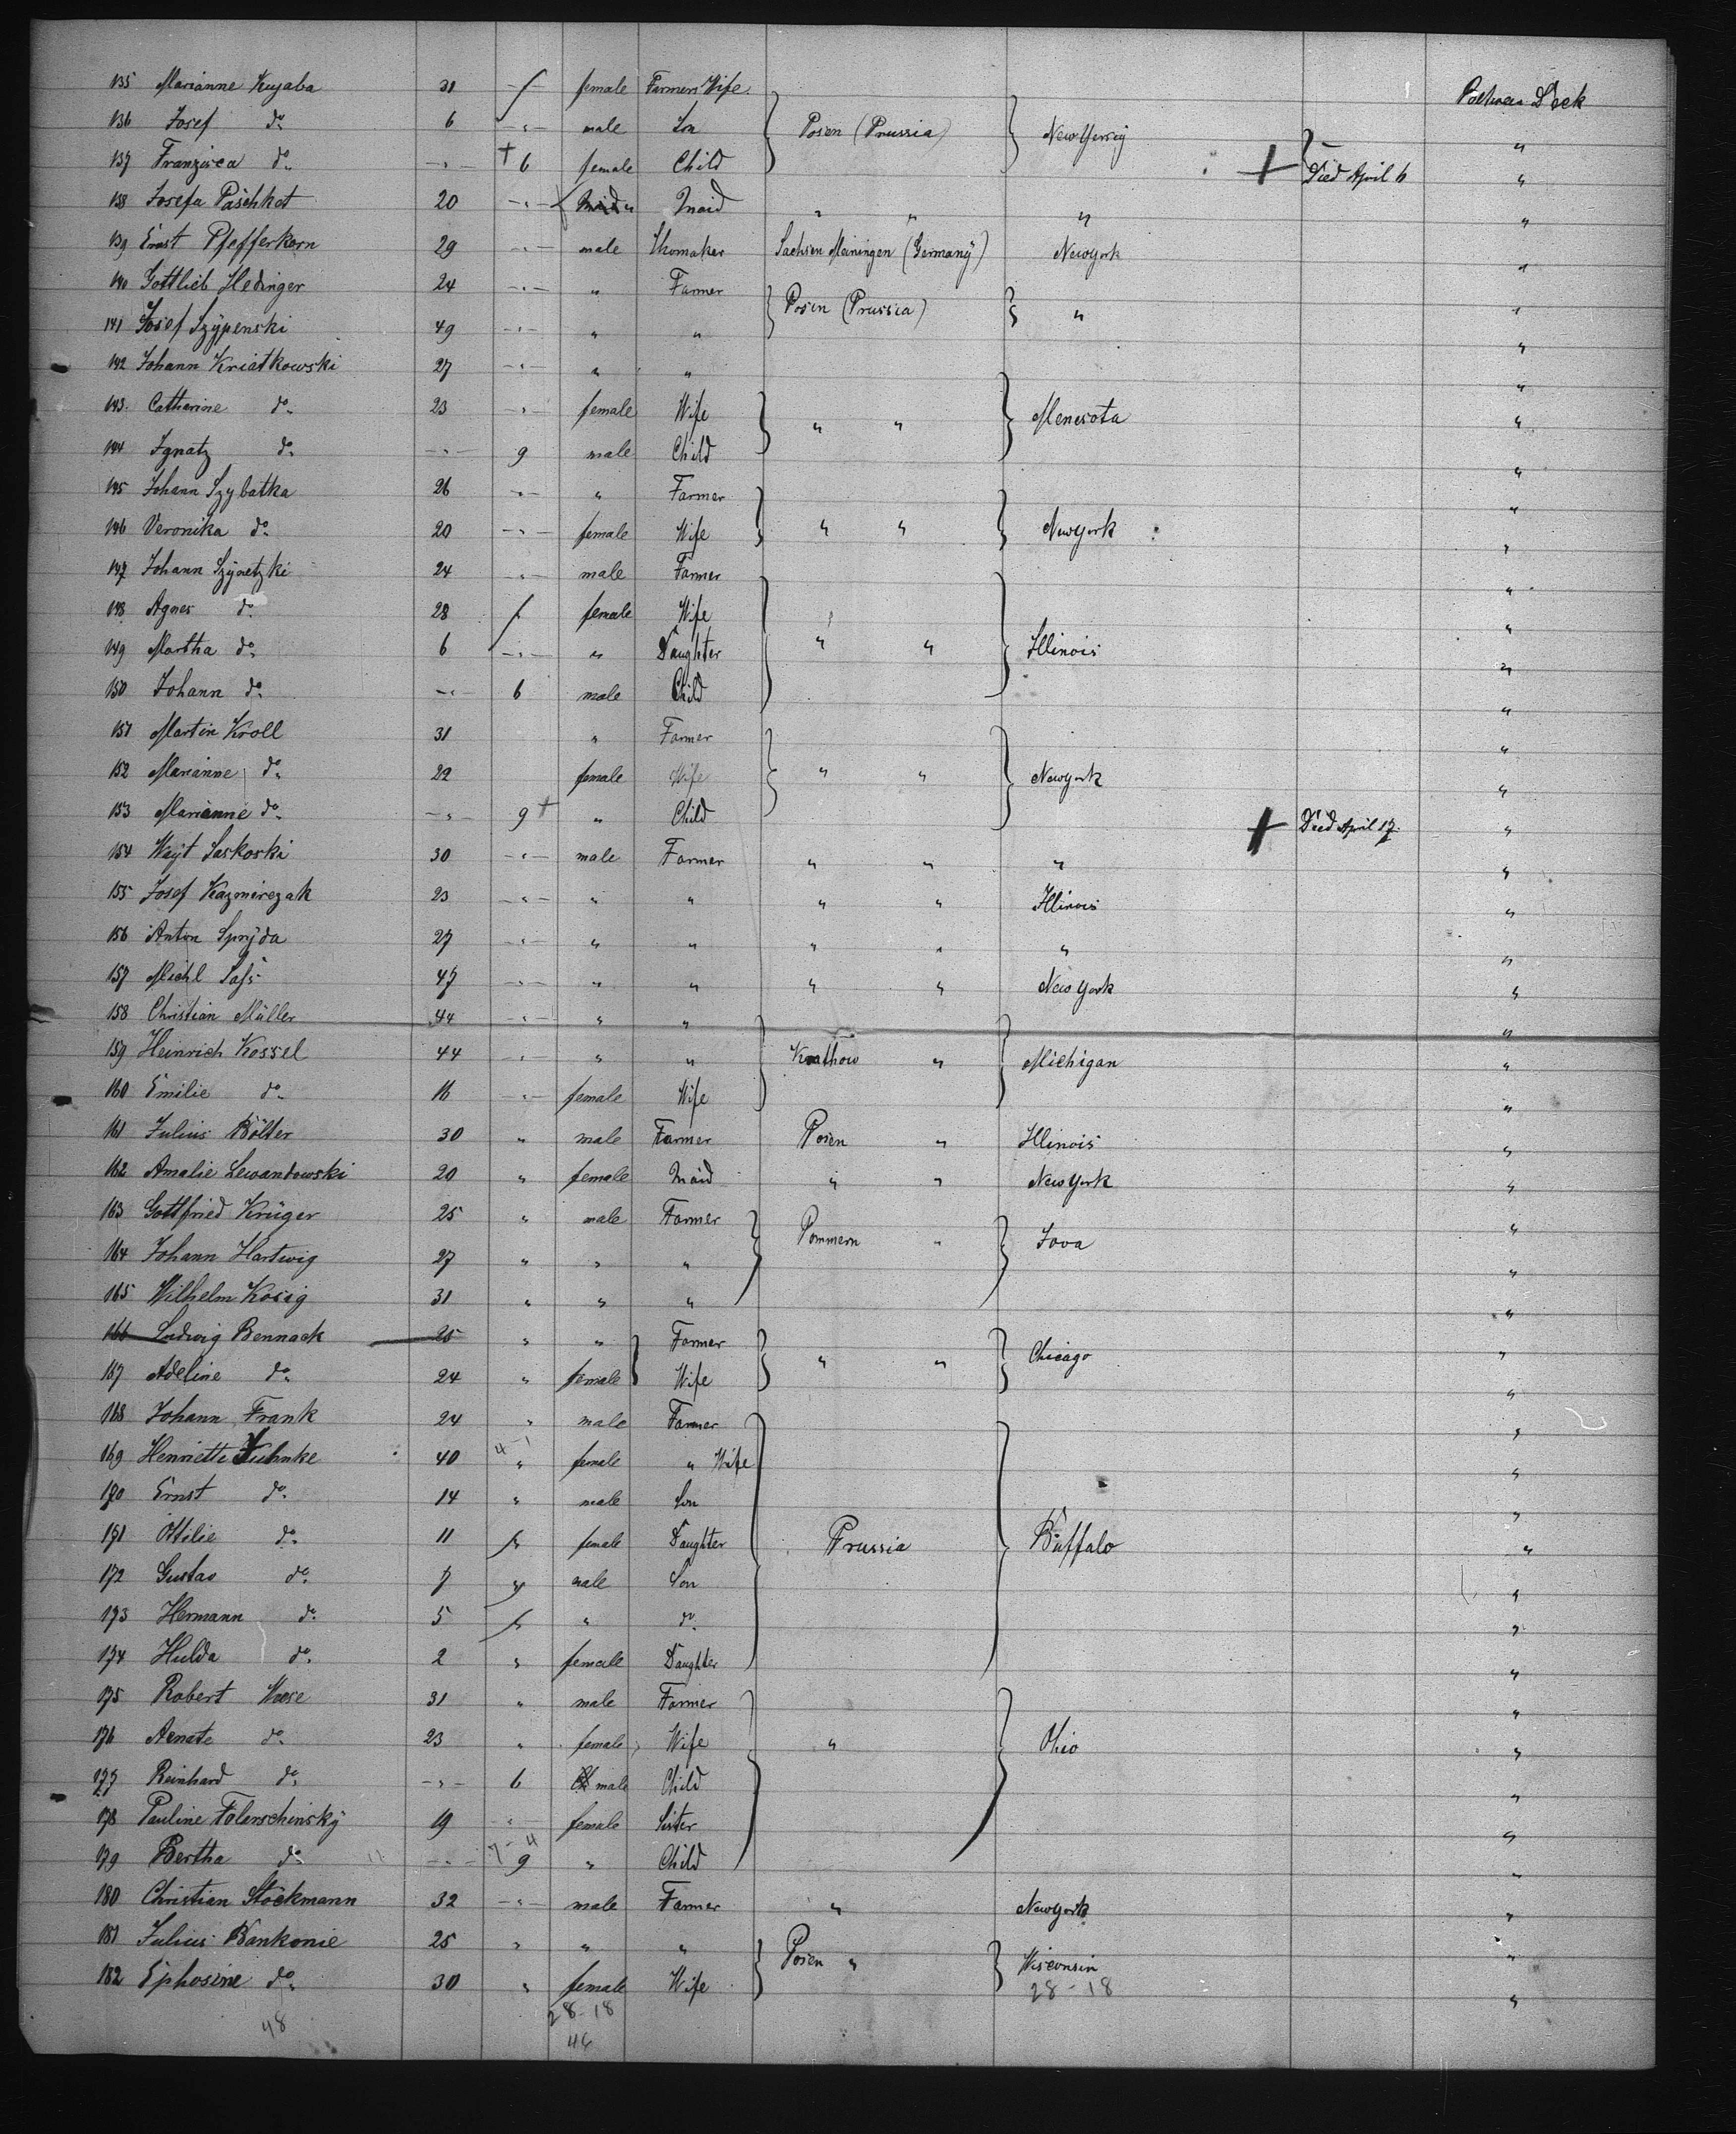 135 Marianne Kujaba 31 -"- female Farmers Wife. Between Deck
136 Josef do. 6 -"- male Son Posen (Prussia) New Yersey "
137 Franzisca do. -"- + 6 female Child + Died April 6 "
138 Josefa Paschkot 20 -"- Maid " " " "
139 Ernst Pfefferkorn 29 -"- male Shomaker Sachsen Meiningen (Germany) Newyork "
140 Gottlieb Hedinger 24 -"- " Farmer Posen (Prussia) " "
141 Josef Szypenski 49 -"- " " "
142 Johann Kriatkowski 27 -"- " " "
143. Catharine do. 23 -"- female Wife " " Menesota "
144 Ignatz do. -"- 9 male Child "
145 Johann Szybatka 26 -"- " Farmer "
146 Veronika do. 20 -"- female Wife " " Newyork "
147 Johann Szynetzki 24 -"- male Farmer "
148 Agnes do. 28 " female Wife "
149 Martha do. 6 -"- " Daughter " " Illinois "
150 Johann do. -"- 6 male Child "
151 Martin Kroll 31 " Farmer "
152 Marianne do. 22 female Wife " " Newyork "
153 Marianne do. -"- 9 + " Child + Died April 17. "
154 Wayt Saskoski 30 -"- male Farmer " " " "
155 Josef Kazmirczak 23 -"- " " " " Illinois "
156 Anton Spryda 27 -"- " " " " " "
157 Michl Sass 47 -"- " " " " New York "
158 Christian Müller 44 -"- " " "
159 Heinrich Kossel 44 -"- " " " Michigan "
160 Emilie do. 16 -"- female Wife "
161 Julius Bölter 30 " male Farmer Posen " Illinois "
162 Amalie Lewandowski 20 " female Maid " " New York "
163 Gottfried Krüger 25 " male Farmer Pommern " Iova "
164 Johann Hartwig 27 " " " "
165 Wilhelm Kosig 31 " " " "
166 Ludwig Bennack 25 " " Farmer " " Chicago "
167 Adeline do. 24 " female Wife "
168 Johann Frank 24 " male Farmer "
169 Henriette Kuhnke 40 4-1 " female " Wife "
170 Ernst do. 14 " male Son "
171 Ottilie do. 11 " female Daughter Prussia Buffalo "
172 Gustav do. 7 " male Son "
173 Hermann do. 5 " " do. "
174 Hulda do. 2 " female Daughter "
175 Robert Wose 31 " male Farmer "
176 Renate do. 23 " female Wife " Ohio "
177 Reinhard do. -"- 6 male Child "
178 Pauline Folerschinsky 19 -"- female Sister "
179 Bertha do. -"- 9 " Child "
180 Christian Stockmann 32 -"- male Farmer " Newyork "
181 Julius Bankonie 25 " " " Posen " Wisconsin "
182 Ephosine do. 30 " female Wife "
28-18 28-18
48 46